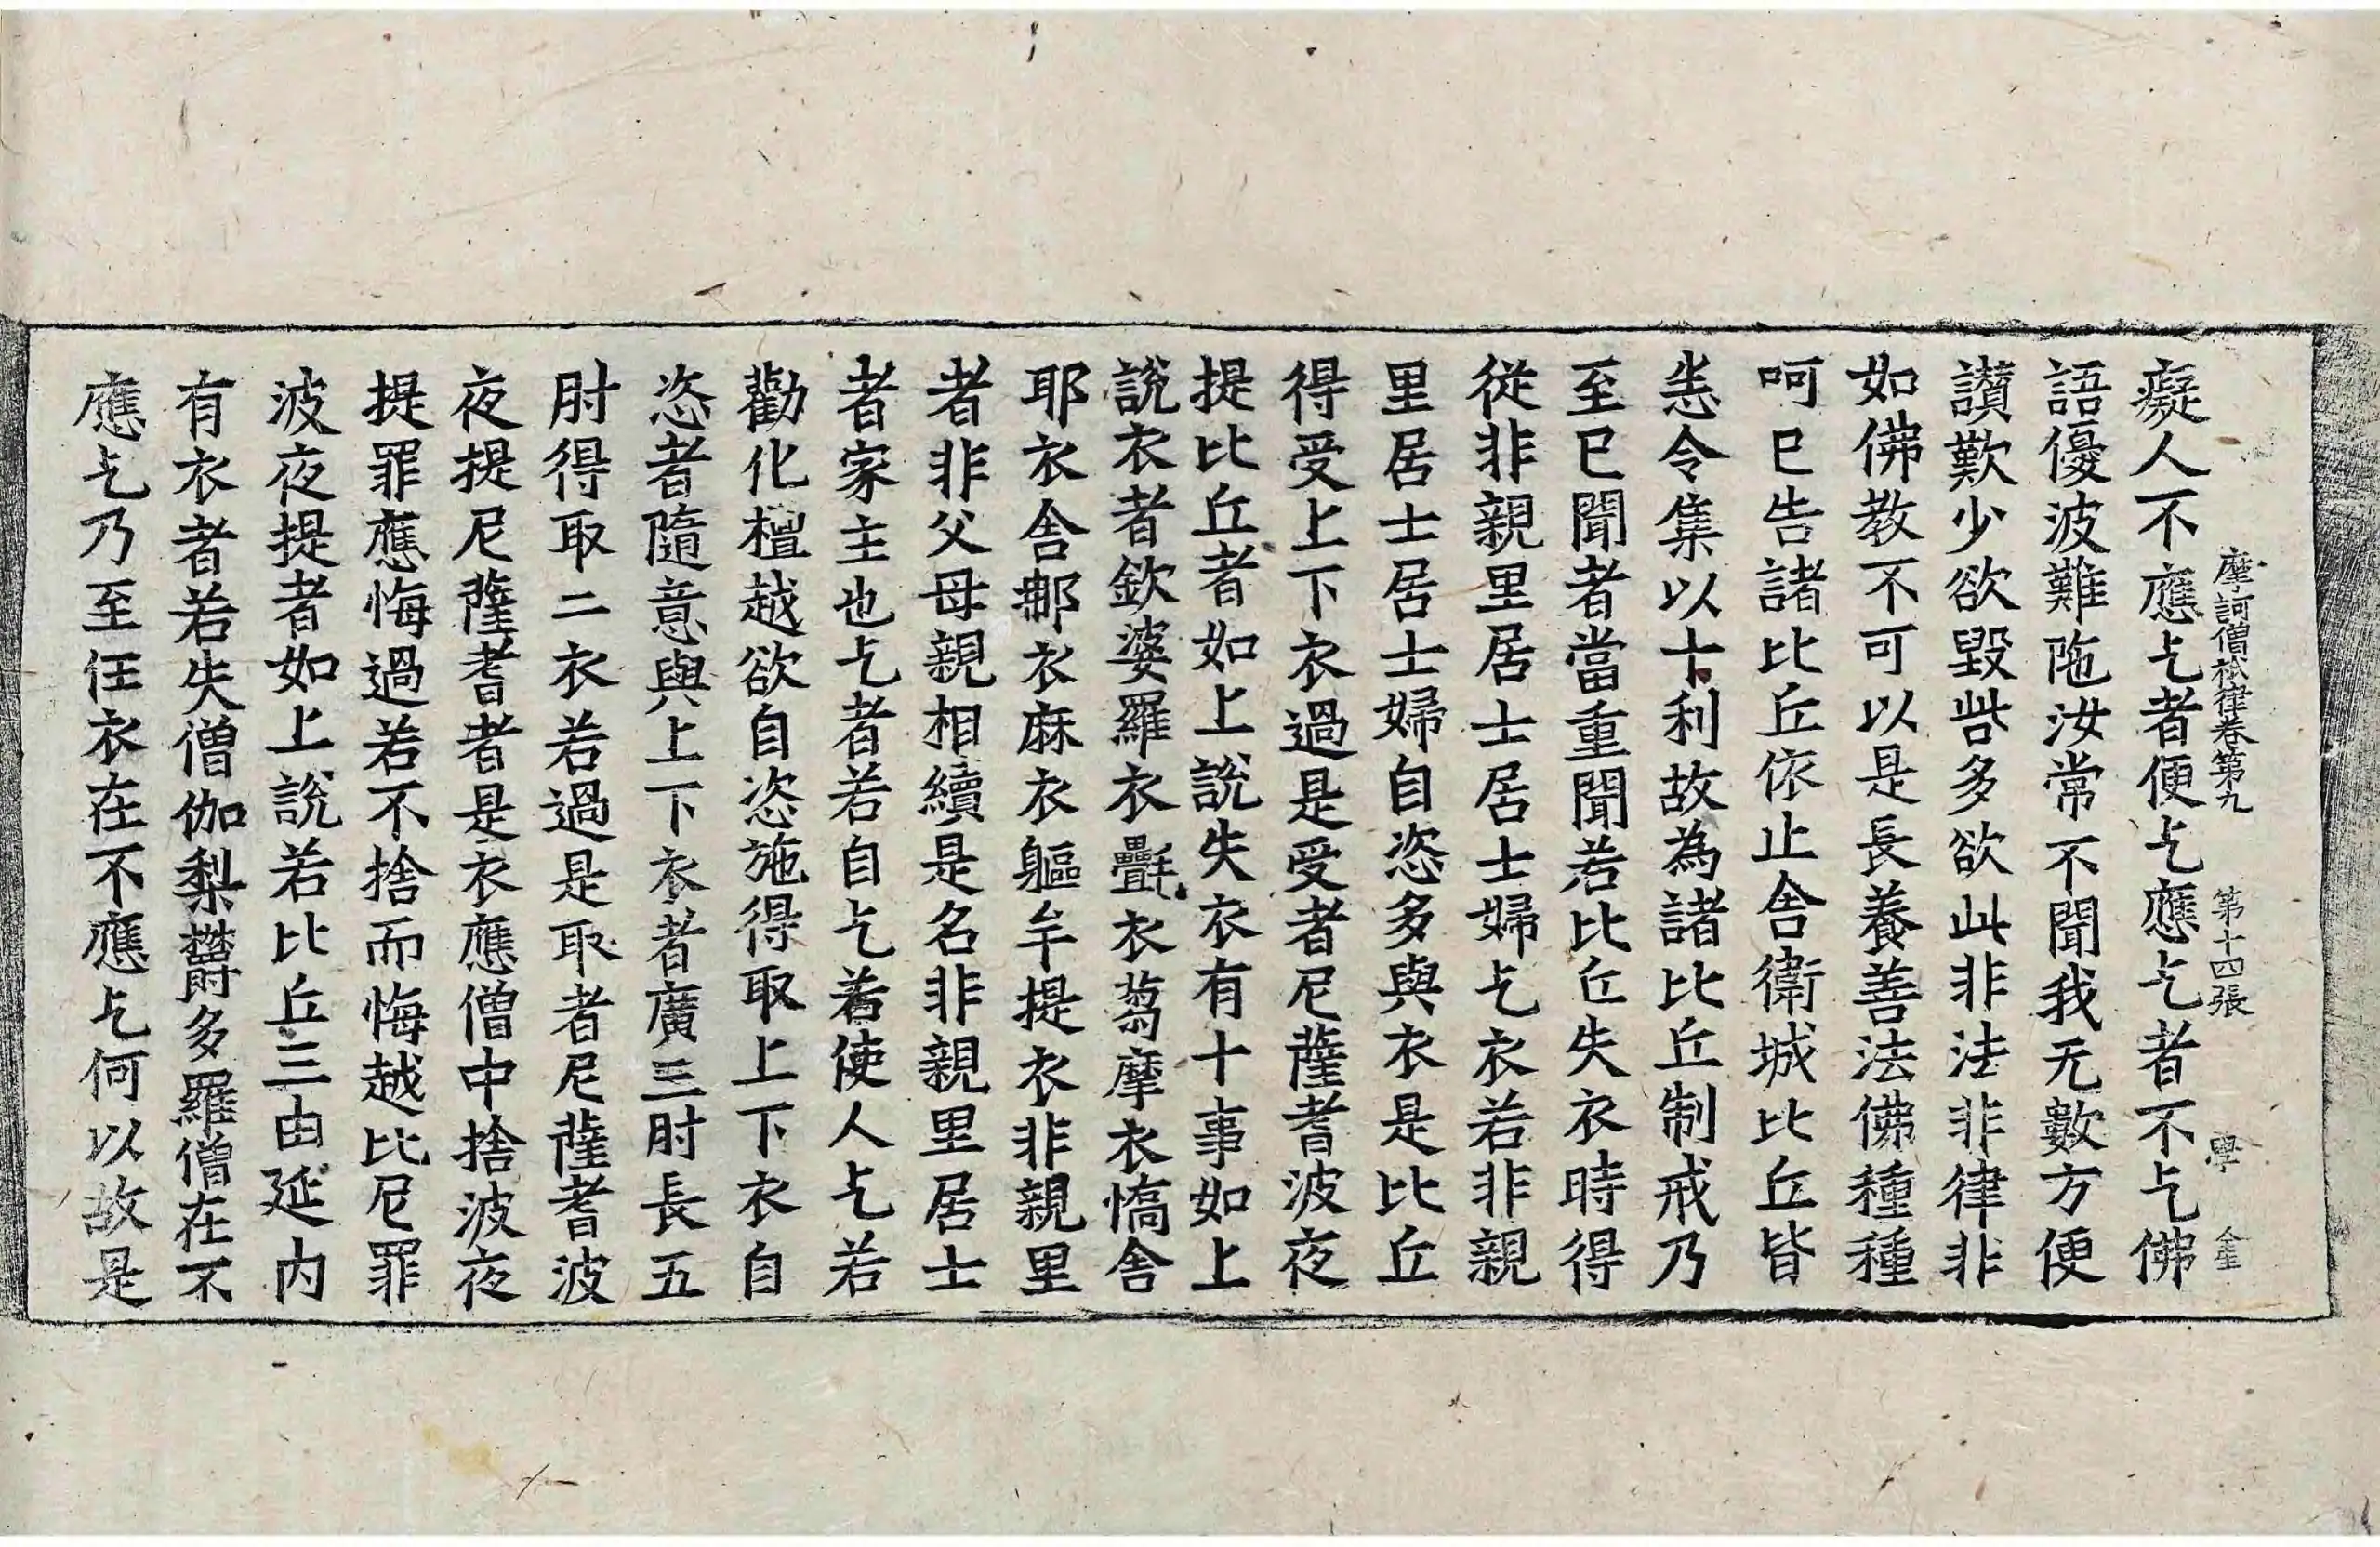 摩訶僧祇律卷第九 第十四張 學
癡人不應乞者便乞應乞者不乞佛
語優波難陁汝常不聞我无數方便
讃歎少欲毀呰多欲此非法非律非
如佛教不可以是長養善法佛種種
呵已告諸比丘依止舍衛城比丘皆
悉令集以十利故為諸比丘制戒乃
至已聞者當重聞若比丘失衣時得
從非親里居士居士婦乞衣若非親
里居士居士婦自恣多與衣是比丘
得受上下衣過是受者尼薩耆波夜
提比丘者如上說失衣有十事如上
說衣者欽婆羅衣㲲衣芻摩衣憍舍
耶衣舍那衣麻衣軀牟提衣非親里
者非父母親相續是名非親里居士
者家主也乞者若自乞若使人乞若
勸化檀越欲自恣施得取上下衣自
恣者隨意與上下衣者廣三肘長五
肘得取二衣若過是取者尼薩耆波
夜提尼薩耆者是衣應僧中捨波夜
提罪應悔過若不捨而悔越比尼罪
波夜提者如上說若比丘三由延内
有衣者若失僧伽梨欝多羅僧在不
應乞乃至任衣在不應乞何以故是